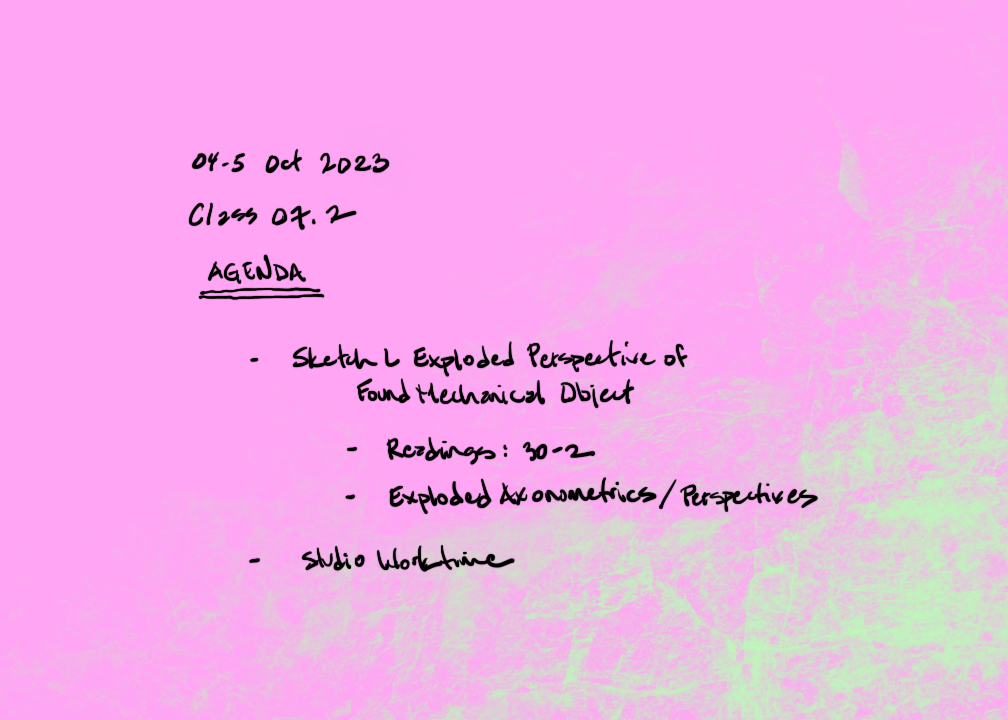 04-5 Oct 2023
Class 07.2
AGENDA
- Sketch L Exploded Perspective of
Found Mechanical Object
- Readings: 30-2
- Exploded Axonometrics/Perspectives
- Studio Worktime